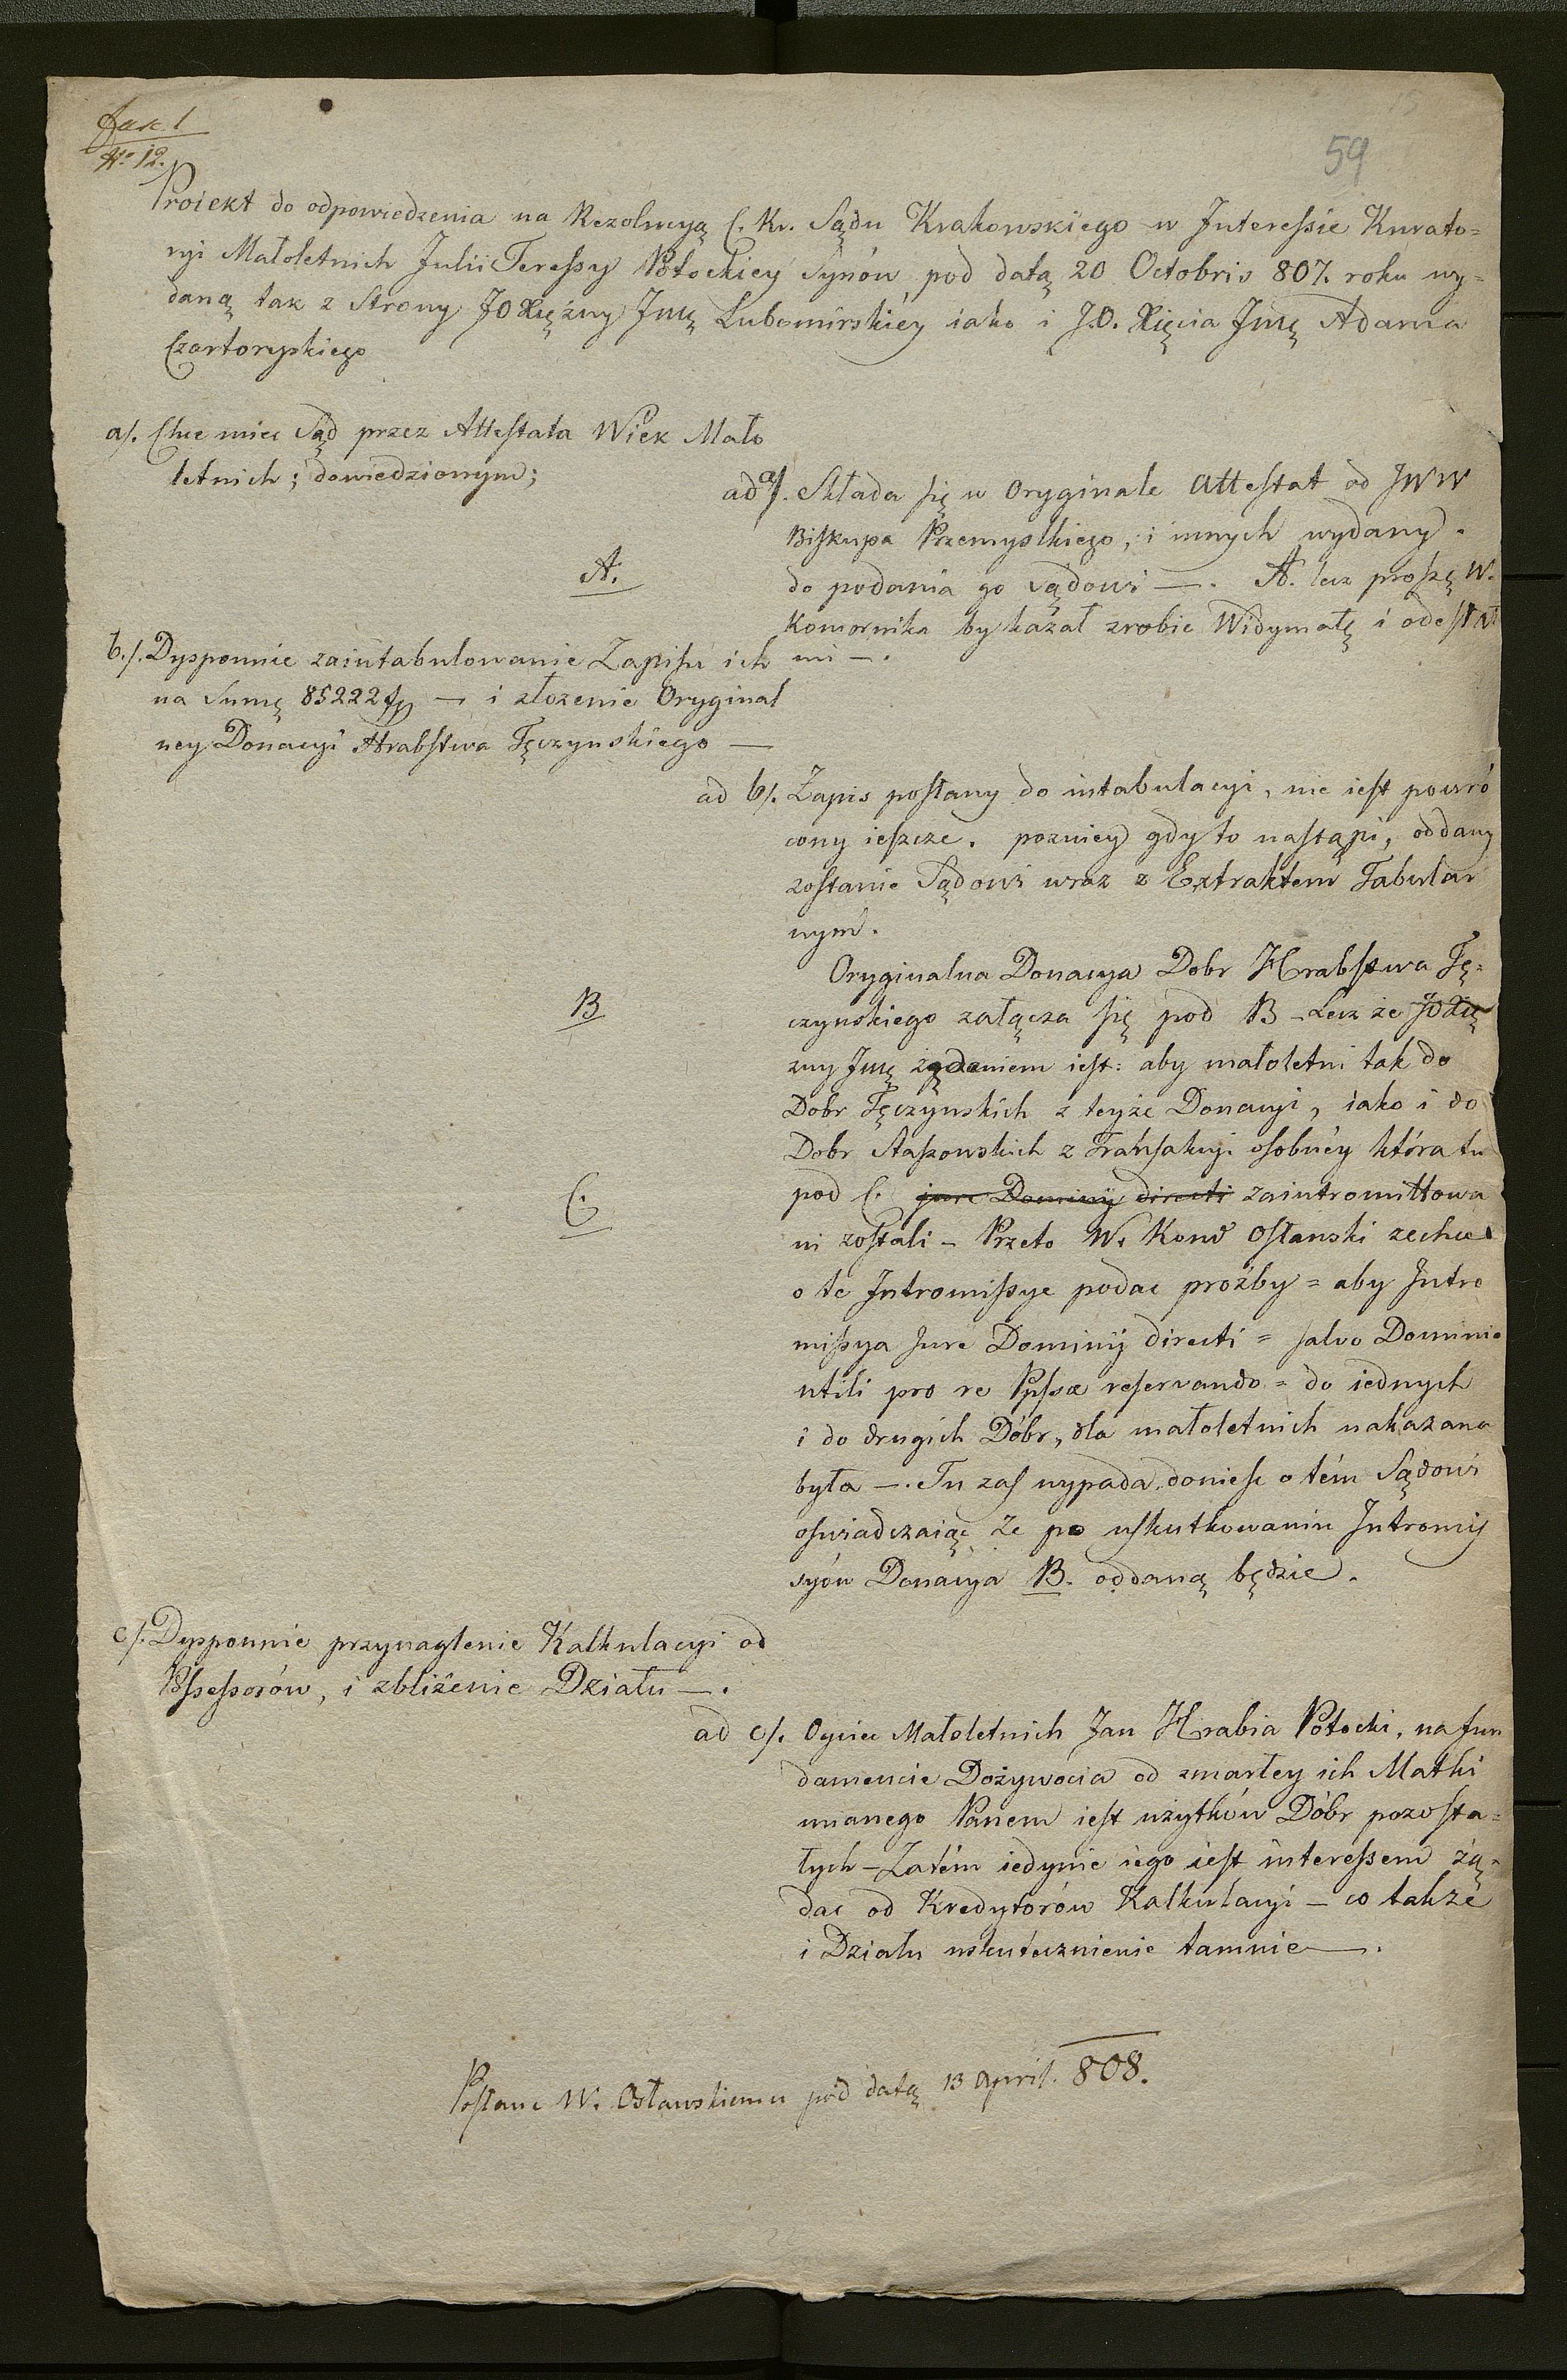 fasc 1
No 12.
59
Proiekt do odpowiedzenia na Rezolucyą C. Kr. Sądu Krakowskiego w Interessie Kurato=
ryi Małoletnich Julii Teressy Potockiey Synów pod datą 20 Octobris 807. roku wy=
daną tak z Strony JO Xiężny Jmę Lubomirskiéy iako i J.O. Xięcia Jmę Adama
Czartoryskiego
a/. Chce miec Sąd przez Attestata Wiek Mało
letnich; dowiedzionym;
ad a/. Składa się w Oryginale Attestat od JWW
Biskupa Przemyslkiego, i innych wydany.
A.
do podania go sądowi —. A. lecz proszę W.
Komornika by kazał zrobic Widymatę i odesłał
mi —.
b./. Dysponuie zaintabulowanie Zapisu ich
na Sumę 85222 # — i złozenie Oryginal
ney Donacyi Hrabstwa Tęczynskiego —
ad b/. Zapis posłany do intabulacyi, nie iest powró
cony ieszcze. pozniey gdy to nastąpi, oddany
zostanie Sądowi wraz z Extraktem Tabular
nym.
Oryginalna Donacya Dobr Hrabstwa Tę=
B
czynskiego załącza się pod B - Lecz ze JO Xię
zny Jmę ządaniem iest: aby małoletni tak do
Dobr Tęczynskich z teyże Donacyi, iako i do
Dobr Staszowskich z Transakcyi osobnéy która tu
C.
pod C. jure Dominij directi zaintromittowa
ni zostali - Przeto W. Kom Osławski zechce
o te Intromissye podac proźby = aby Intro
missya Jure Dominij directi = salvo Dominio
utili pro re Ppssæ reservando = do iednych
i do drugich Dóbr, dla małoletnich nakazana
była —. Tu zas wypada doniesc o tém Sądowi
oswiadczaiąc że po uskutkowaniu Intromis
syów Donacya B. oddaną będzie.
c/. Dysponuie przynaglenie Kalkulacyi od
Possessorów, i zbliżenie Działu —.
ad c/. Oyciec Małoletnich Jan Hrabia Potocki, na fun
damencie Dożywocia od zmarłey ich Matki
mianego Panem iest użytków Dóbr pozosta=
łych - Zatém iedynie iego iest interessem żą=
dac od Kredytorów Kalkulacyi - co takze
i Działu uskutecznienie tamuie —.
Posłane W. Osławskiemu pod datą 13 April. 808.